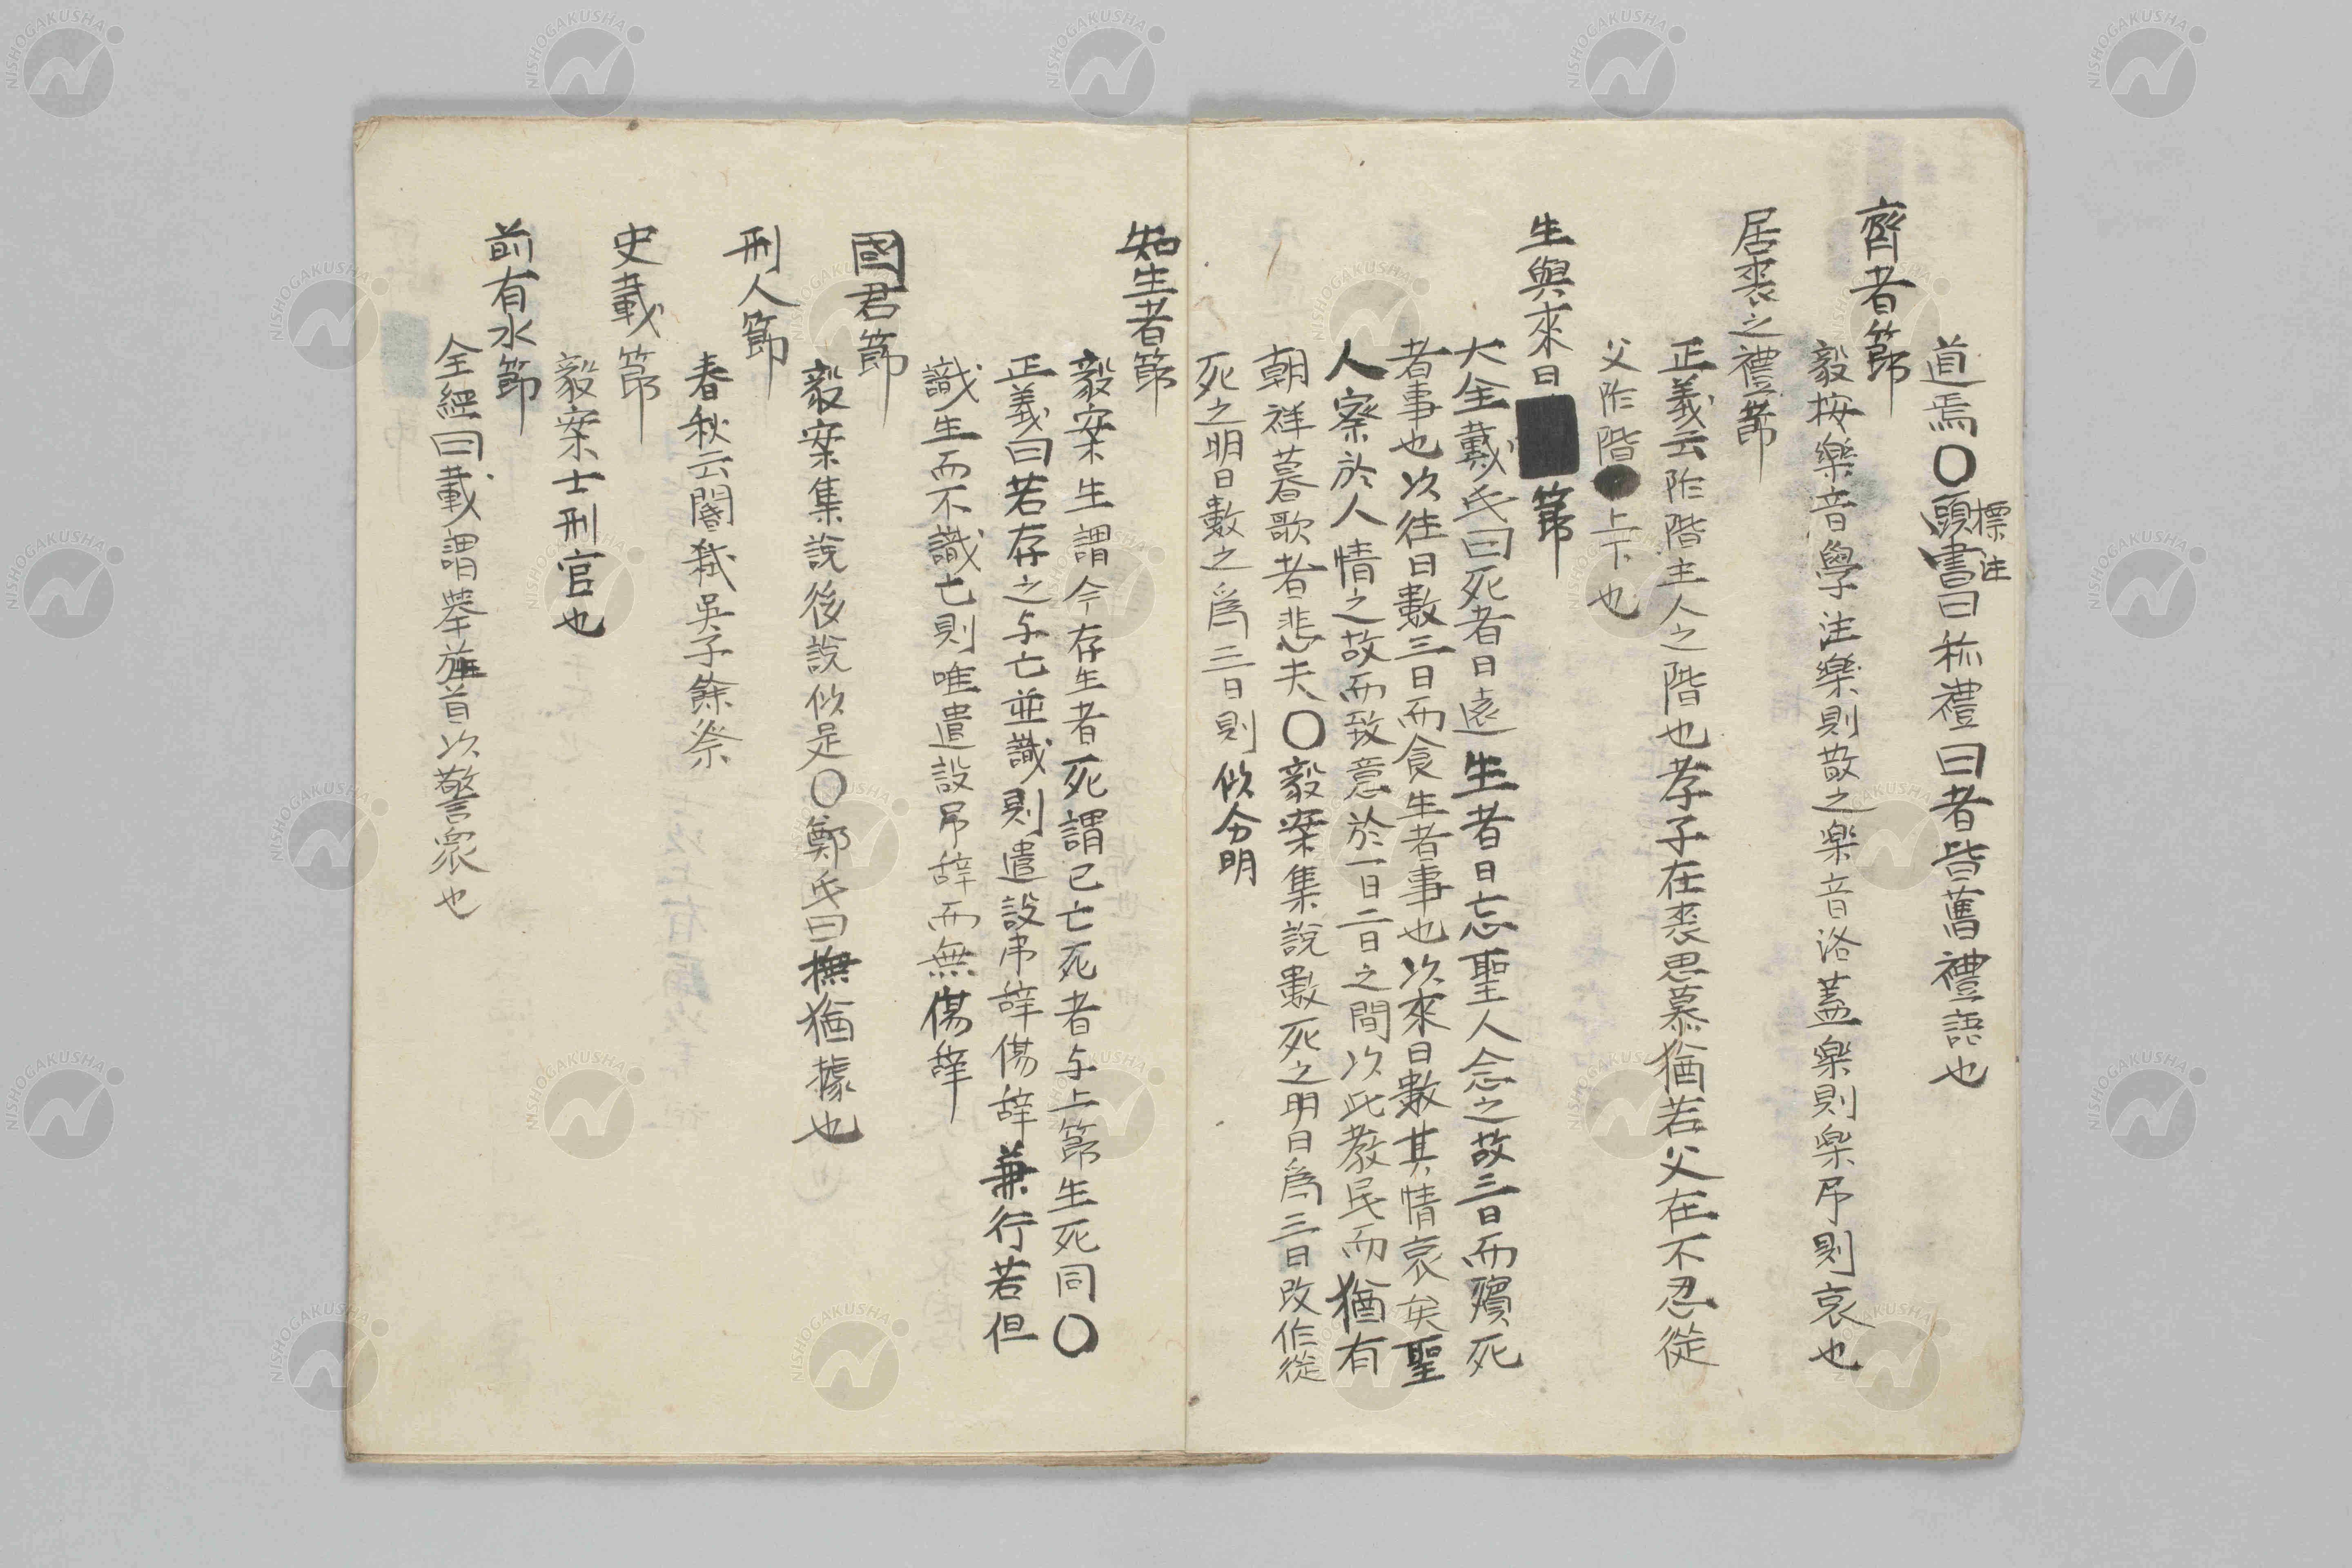 道焉〇頭書曰称禮曰者皆舊禮語也
標注
齊者節
毅按樂音學注樂則敬之楽音洛蓋楽則楽吊則哀也
居喪之禮節
正義云阼階主人之階也孝子在喪思慕猶若父在不忍從
父阼階上下也
生與來日節
大全戴氏曰死者日遠生者日忘聖人念之故三日而殯死
者事也以往日數三日而食生者事也以來日數其情哀矣聖
人察於人情之故而致意於一日二日之間以此教民而猶有
朝祥暮歌者悲夫〇毅案集説數死之明日爲三日改作從
死之明日數之爲三日則似分明
知生者節
毅案生謂今存生者死謂已亡死者与上節生死同〇
正義曰若存之与亡並識則遣設吊辞傷辞兼行若但
識生而不識亡則唯遣設吊辞而無傷辞
國君節
毅案集説後説似是〇鄭氏曰撫猶據也
刑人節
春秋云閽弑吳子餘祭
史載節
毅案士刑官也
前有水節
全經曰載謂舉旌首以警衆也
NISHOGAKUSHA